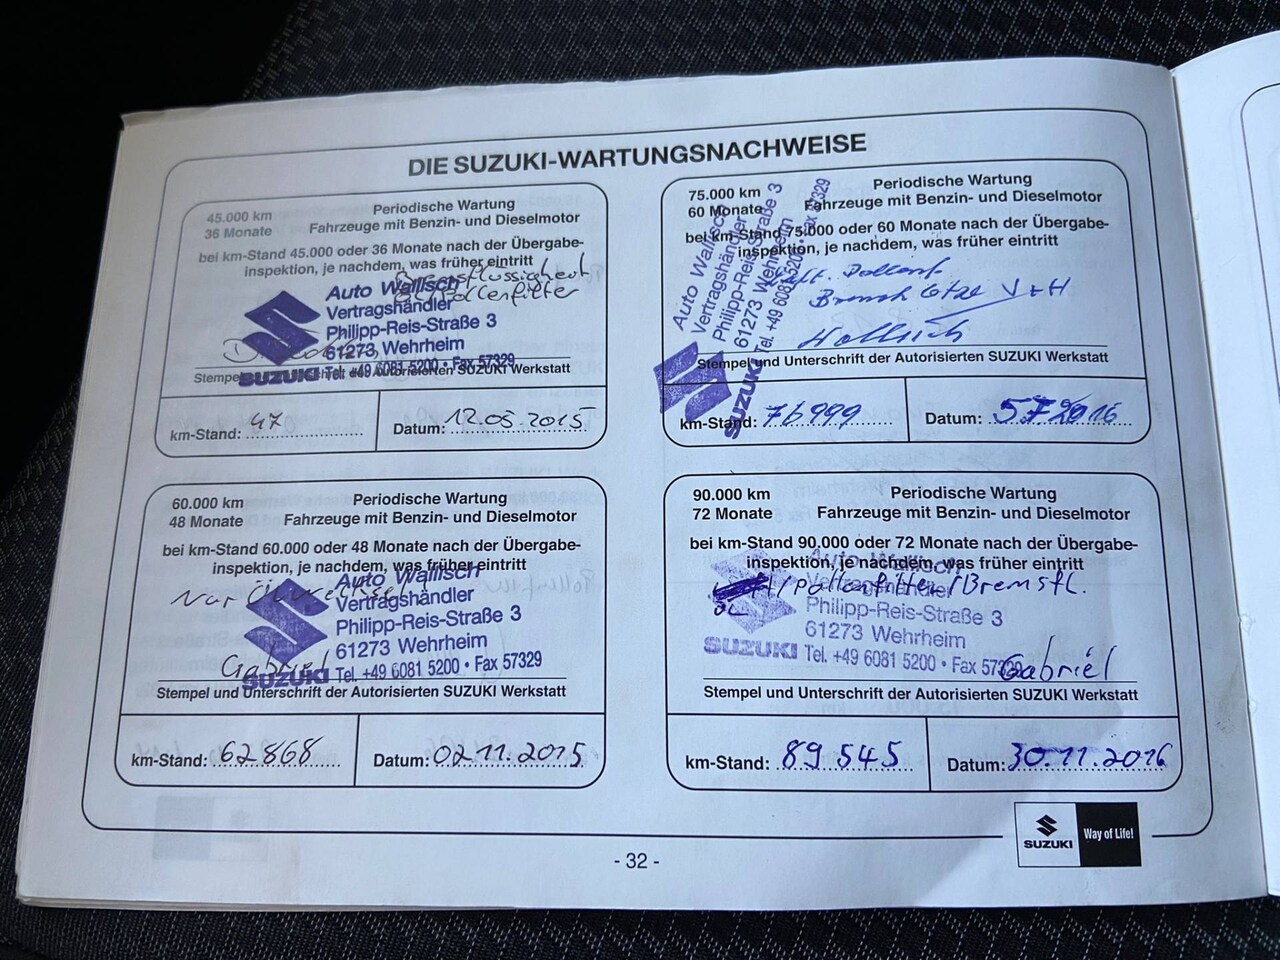 DIE SUZUKI-WARTUNGSNACHWEISE
45.000 km
36 Monate
Periodische Wartung
Fahrzeuge mit Benzin- und Dieselmotor
bei km-Stand 45.000 oder 36 Monate nach der Übergabe-
inspektion, je nachdem, was früher eintritt
Bremsflüssigkeit
Pollenfilter
Auto Wallisch
Vertragshändler
Philipp-Reis-Straße 3
61273 Wehrheim
SUZUKI Tel. +49 6081 5200 • Fax 57329
Stempel und Unterschrift der Autorisierten SUZUKI Werkstatt
km-Stand: 47
Datum: 12.05.2015
60.000 km
48 Monate
Periodische Wartung
Fahrzeuge mit Benzin- und Dieselmotor
bei km-Stand 60.000 oder 48 Monate nach der Übergabe-
inspektion, je nachdem, was früher eintritt
Nur Ölwechsel!
Auto Wallisch
Vertragshändler
Philipp-Reis-Straße 3
61273 Wehrheim
Gabriel
SUZUKI Tel. +49 6081 5200 • Fax 57329
Stempel und Unterschrift der Autorisierten SUZUKI Werkstatt
km-Stand: 62868
Datum: 02.11.2015
75.000 km
60 Monate
Periodische Wartung
Fahrzeuge mit Benzin- und Dieselmotor
bei km-Stand 75.000 oder 60 Monate nach der Übergabe-
inspektion, je nachdem, was früher eintritt
Auto Wallisch
Vertragshändler
Philipp-Reis-Straße 3
61273 Wehrheim
SUZUKI Tel. +49 6081 5200 • Fax 57329
V+H
Stempel und Unterschrift der Autorisierten SUZUKI Werkstatt
km-Stand: 76999
Datum: 5.7.2016
90.000 km
72 Monate
Periodische Wartung
Fahrzeuge mit Benzin- und Dieselmotor
bei km-Stand 90.000 oder 72 Monate nach der Übergabe-
inspektion, je nachdem, was früher eintritt
Auto Wallisch
Vertragshändler
/Pollenfilter/Bremsfl.
ÖL
Philipp-Reis-Straße 3
61273 Wehrheim
SUZUKI Tel. +49 6081 5200 • Fax 57329
Gabriel
Stempel und Unterschrift der Autorisierten SUZUKI Werkstatt
km-Stand: 89545
Datum: 30.11.2016
- 32 -
SUZUKI
Way of Life!